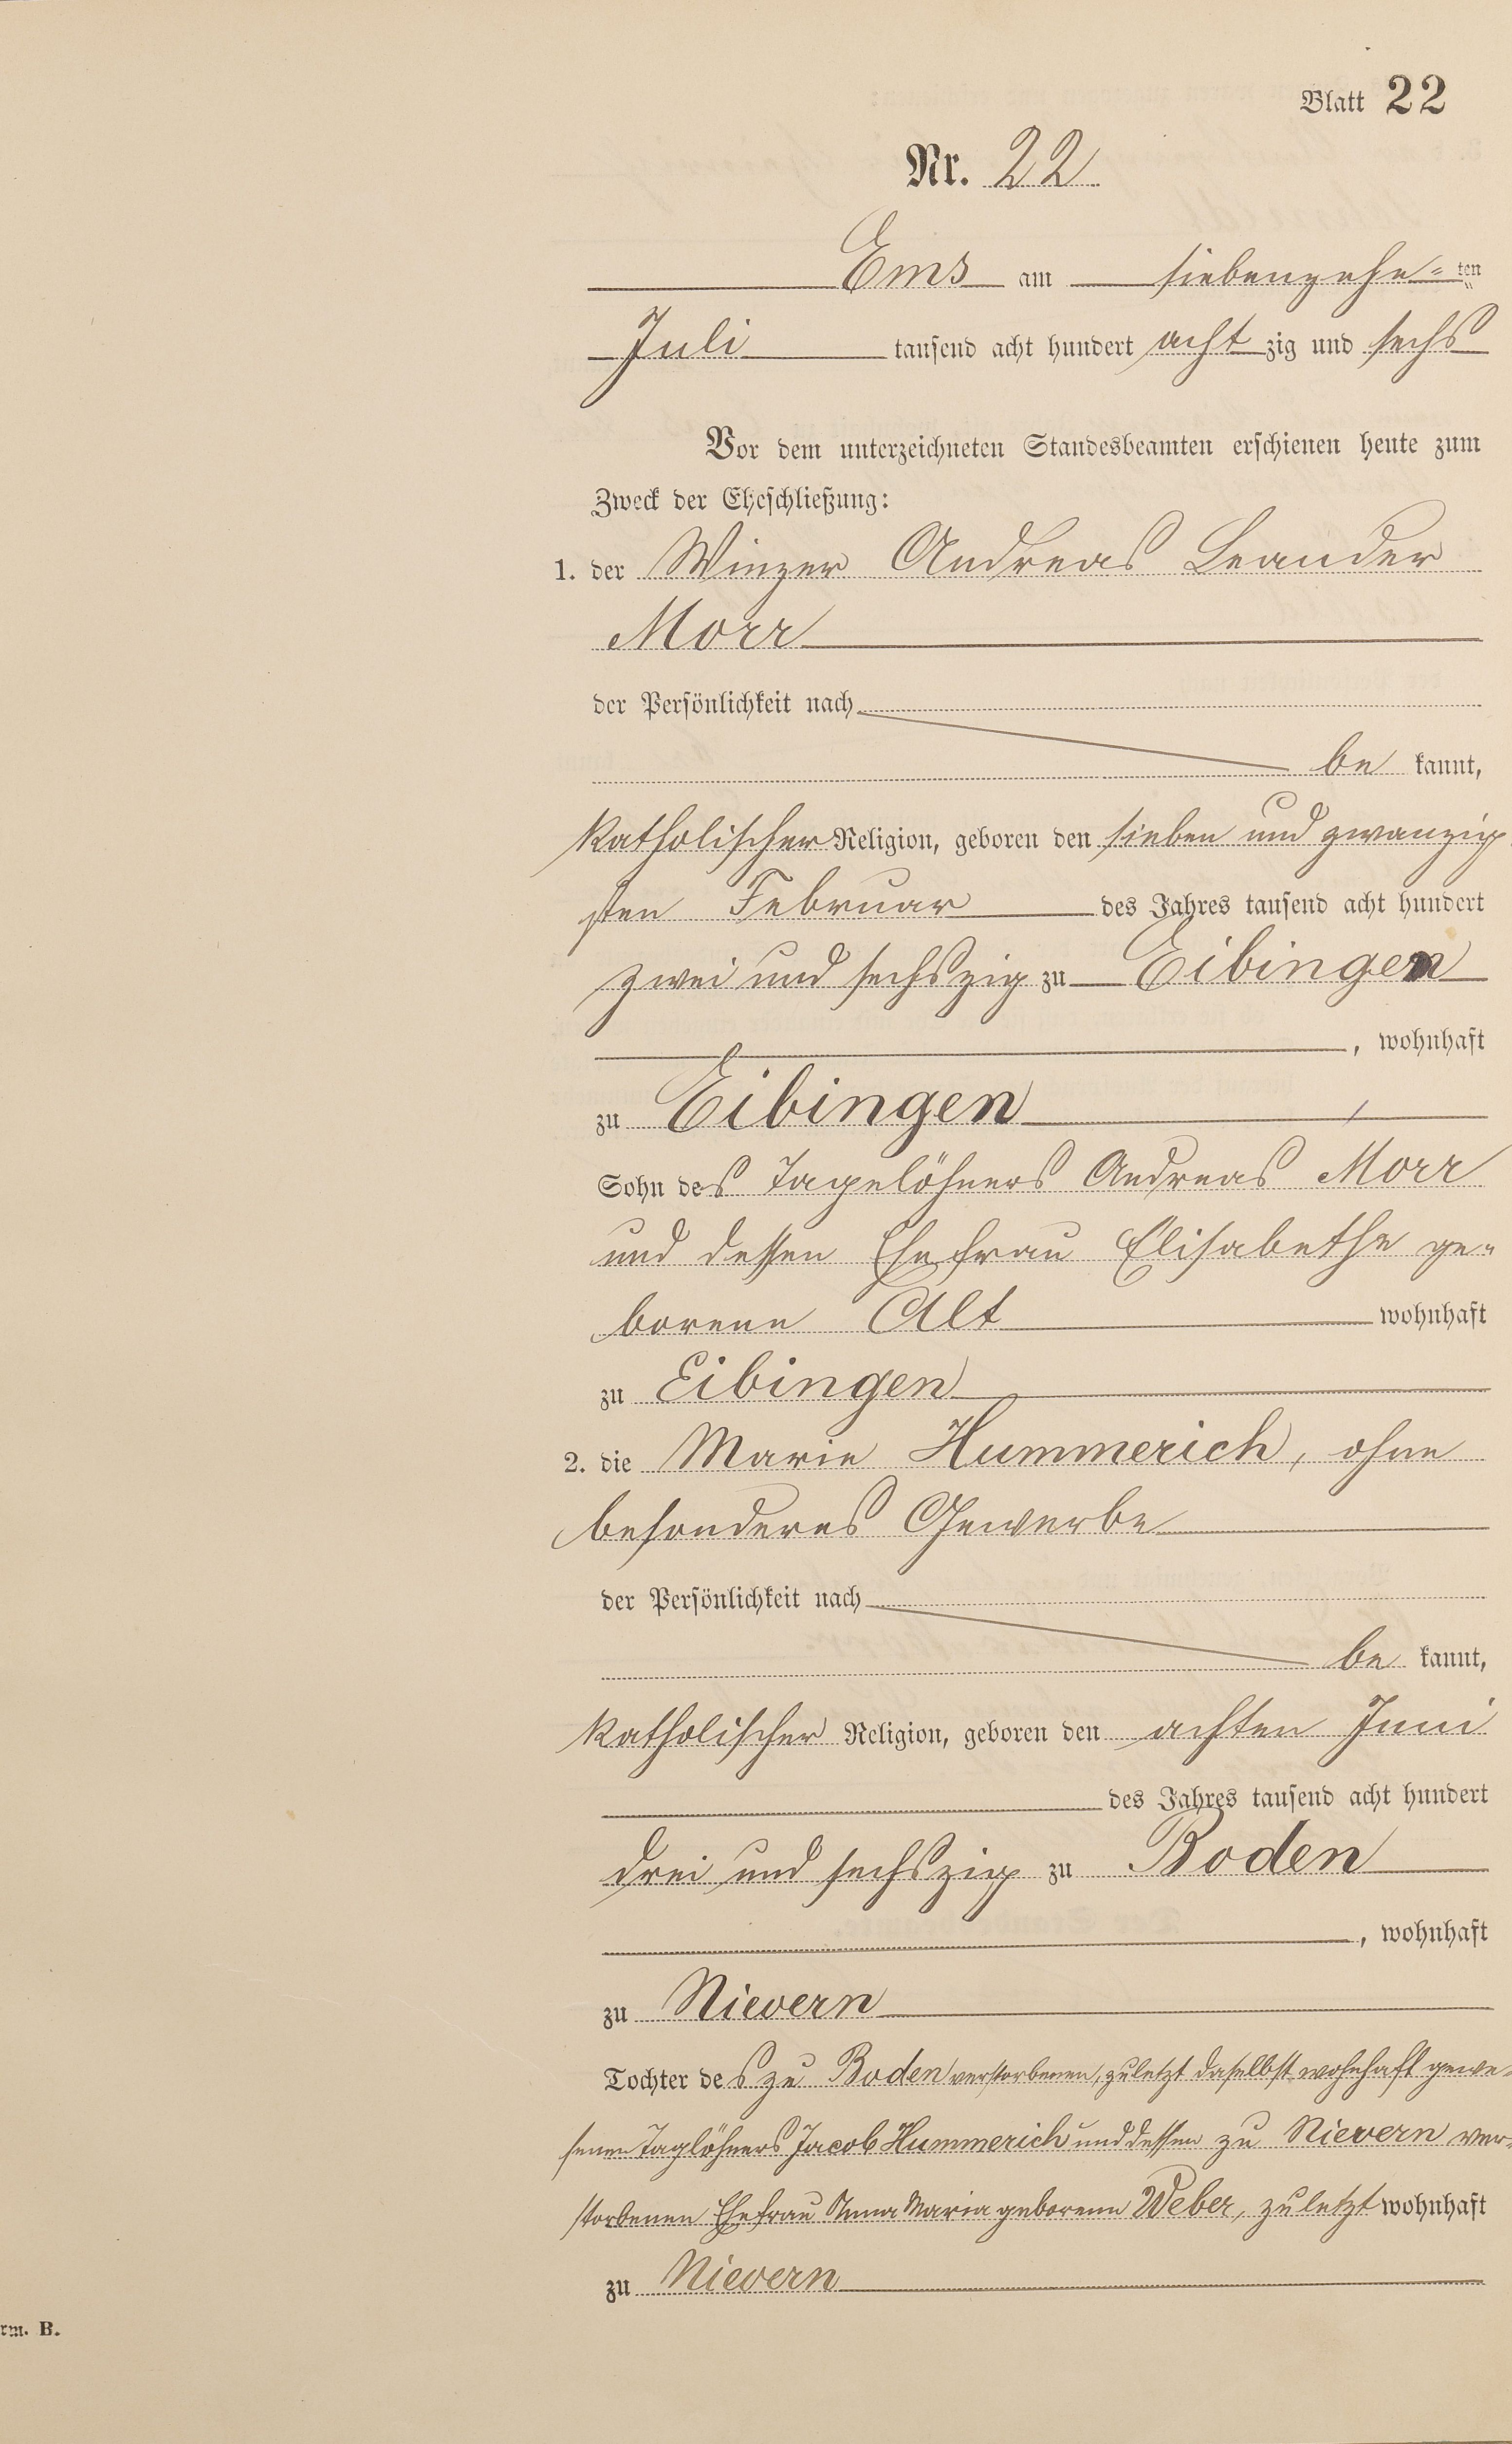 Blatt 22
Nr. 22
Ems am siebenzehn=ten
Juli tausend acht hundert acht zig und sechs
Vor dem unterzeichneten Standesbeamten erschienen heute zum
Zweck der Eheschließung:
1. der Winzer Andreas Leander
Morr
der Persönlichkeit nach
be kannt,
katholischer Religion, geboren den sieben und zwanzig
sten Februar des Jahres tausend acht hundert
zwei und sechszig zu Eibingen
, wohnhaft
zu Eibingen
Sohn des Tagelöhners Andreas Morr
und dessen Ehefrau Elisabethe ge=
borene Alt wohnhaft
zu Eibingen
2. die Marie Hummerich, ohne
besonderes Gewerbe
der Persönlichkeit nach
be kannt,
katholischer Religion, geboren den achten Juni
des Jahres tausend acht hundert
drei und sechszig zu Boden
, wohnhaft
zu Nievern
Tochter des zu Boden verstorbenen, zuletzt daselbst wohnhaft gewe=
senen Taglöhners Jacob Hummerich und dessen zu Nievern ver=
storbenen Ehefrau Anna Maria geborene Weber, zuletzt wohnhaft
zu Nievern
rm. B.